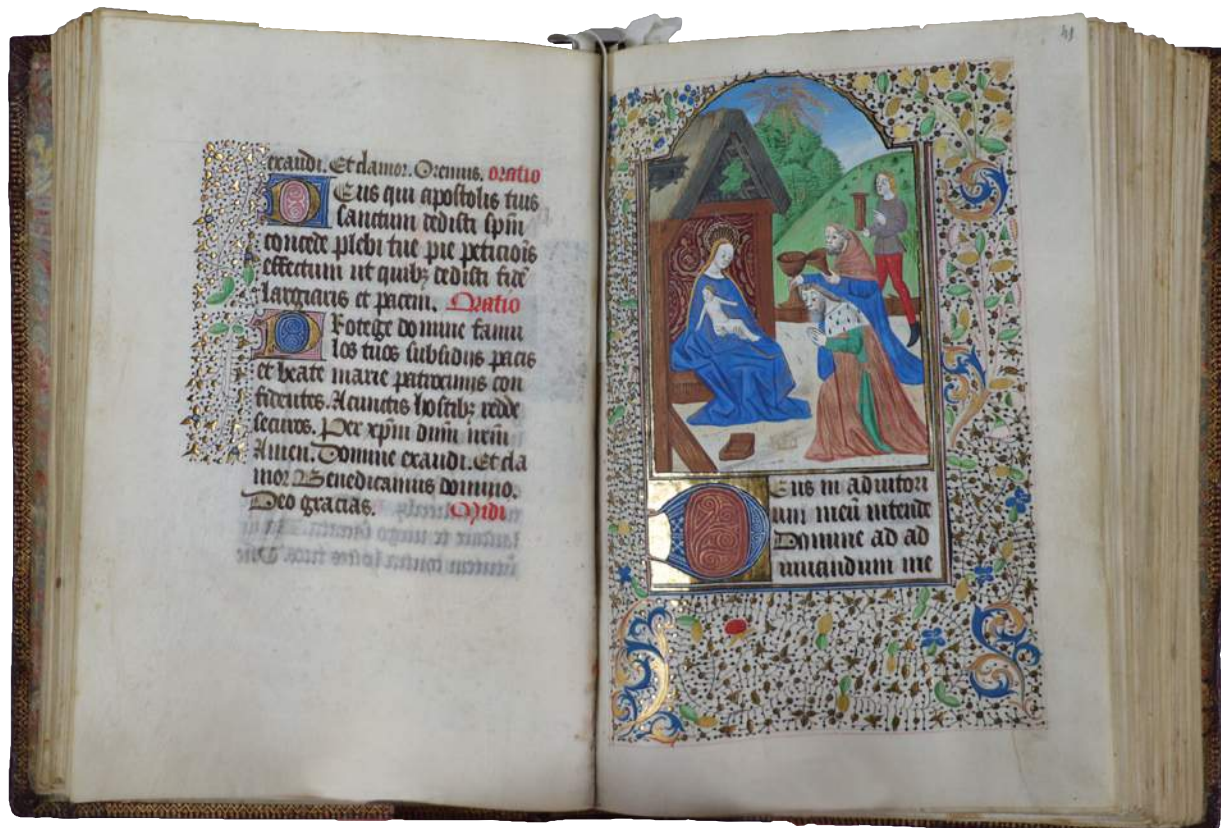 exaudi. Et clamor. Oremus. oratio
Deus qui apostolis tuis
sanctum dedisti spm̄
concede plebi tue pie peticiōis
effectum ut quibꝫ dedisti fidē
largiaris et pacem. Oratio
Protege domine famu
los tuos subsidijs pacis
et beate marie patrocinijs con
fidentes. A cunctis hostibꝫ redde
securos. Per xp̄m dn̄m nr̄m
Amen. Domine exaudi. Et cla
mor Benedicamus domino.
Deo gracias. Midi
41
Deus in adiutori
um meū intende
Domine ad ad
iuuandum me